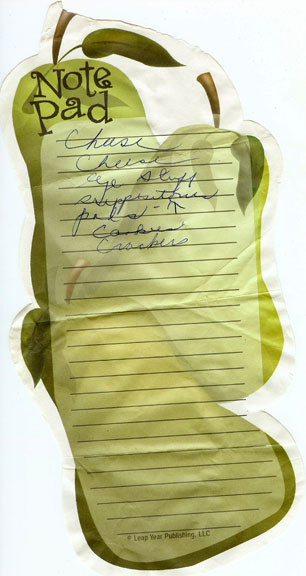 Note
Pad
Cheese
Cheese
eye stuff
suppositories
pads -
Cookies
Crackers
© Leap Year Publishing, LLC